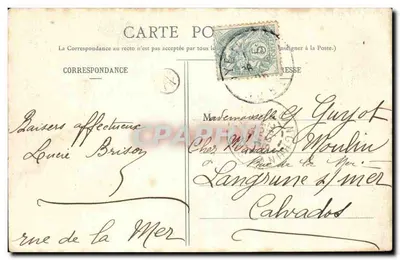 CARTE PO
(La Correspondance au recto n'est pas acceptée par tous le
seigner à la Poste.)
CORRESPONDANCE
RESSE
Baisers affectueux
Lucie Brison
rue de la Mer
Mademoiselle G Guyot
Chez Madame Moulin
Rue de la Mer
à Langrune s/mer
Calvados